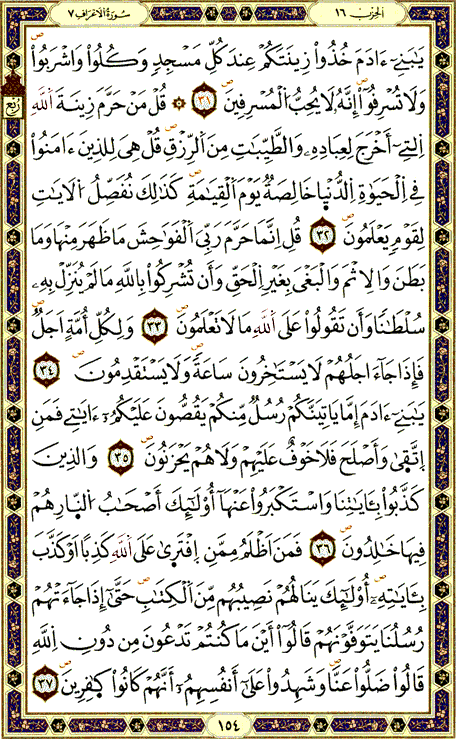 الحزب ١٦
سورة الأعراف ٧
يَٰبَنِےٓ ءَادَمَ خُذُواْ زِينَتَكُمْ عِندَ كُلِّ مَسْجِدٖ وَكُلُواْ وَاشْرَبُواْ
وَلَا تُسْرِفُوٓاْۖ إِنَّهُۥ لَا يُحِبُّ اُ۬لْمُسْرِفِينَۖ ٣١ ۞ قُلْ مَنْ حَرَّمَ زِينَةَ اَ۬للَّهِ
ربع
اِ۬لتِےٓ أَخْرَجَ لِعِبَادِهِۦ وَالطَّيِّبَٰتِ مِنَ اَ۬لرِّزْقِۖ قُلْ هِيَ لِلذِينَ ءَامَنُواْ
فِے اِ۬لْحَيَوٰةِ اِ۬لدُّنْيٖا خَالِصَةٞ يَوْمَ اَ۬لْقِيَٰمَةِۖ كَذَٰلِكَ نُفَصِّلُ اُ۬لَايَٰتِ
لِقَوْمٖ يَعْلَمُونَۖ ٣٢ قُلِ اِنَّمَا حَرَّمَ رَبِّيَ اَ۬لْفَوَٰحِشَ مَا ظَهَرَ مِنْهَا وَمَا
بَطَنَ وَالِاثْمَ وَالْبَغْيَ بِغَيْرِ اِ۬لْحَقِّ وَأَن تُشْرِكُواْ بِاللَّهِ مَا لَمْ يُنَزِّلْ بِهِۦ
سُلْطَٰناٗ وَأَن تَقُولُواْ عَلَى اَ۬للَّهِ مَا لَا تَعْلَمُونَۖ ٣٣ وَلِكُلِّ أُمَّةٍ اَجَلٞۖ
فَإِذَا جَآءَ اجَلُهُمْ لَا يَسْتَٰخِرُونَ سَاعَةٗ وَلَا يَسْتَقْدِمُونَۖ ٣٤
يَٰبَنِےٓ ءَادَمَ إِمَّا يَاتِيَنَّكُمْ رُسُلٞ مِّنكُمْ يَقُصُّونَ عَلَيْكُمُۥٓ ءَايَٰتِے فَمَنِ
اِ۪تَّقٖيٰ وَأَصْلَحَ فَلَا خَوْفٌ عَلَيْهِمْ وَلَا هُمْ يَحْزَنُونَۖ ٣٥ وَالذِينَ
كَذَّبُواْ بِـَٔايَٰتِنَا وَاسْتَكْبَرُواْ عَنْهَآ أُوْلَٰٓئِكَ أَصْحَٰبُ اُ۬لنّٖارِ هُمْ
فِيهَا خَٰلِدُونَۖ ٣٦ فَمَنَ اَظْلَمُ مِمَّنِ اِ۪فْتَر۪يٰ عَلَى اَ۬للَّهِ كَذِباً اَوْ كَذَّبَ
بِـَٔايَٰتِهِۦٓۖ أُوْلَٰٓئِكَ يَنَالُهُمْ نَصِيبُهُم مِّنَ اَ۬لْكِتَٰبِۖ حَتَّىٰٓ إِذَا جَآءَتْهُمْ
رُسُلُنَا يَتَوَفَّوْنَهُمْ قَالُوٓاْ أَيْنَ مَا كُنتُمْ تَدْعُونَ مِن دُونِ اِ۬للَّهِ
قَالُواْ ضَلُّواْ عَنَّا وَشَهِدُواْ عَلَىٰٓ أَنفُسِهِمُۥٓ أَنَّهُمْ كَانُواْ كٰ۪فِرِينَۖ ٣٧
١٥٤